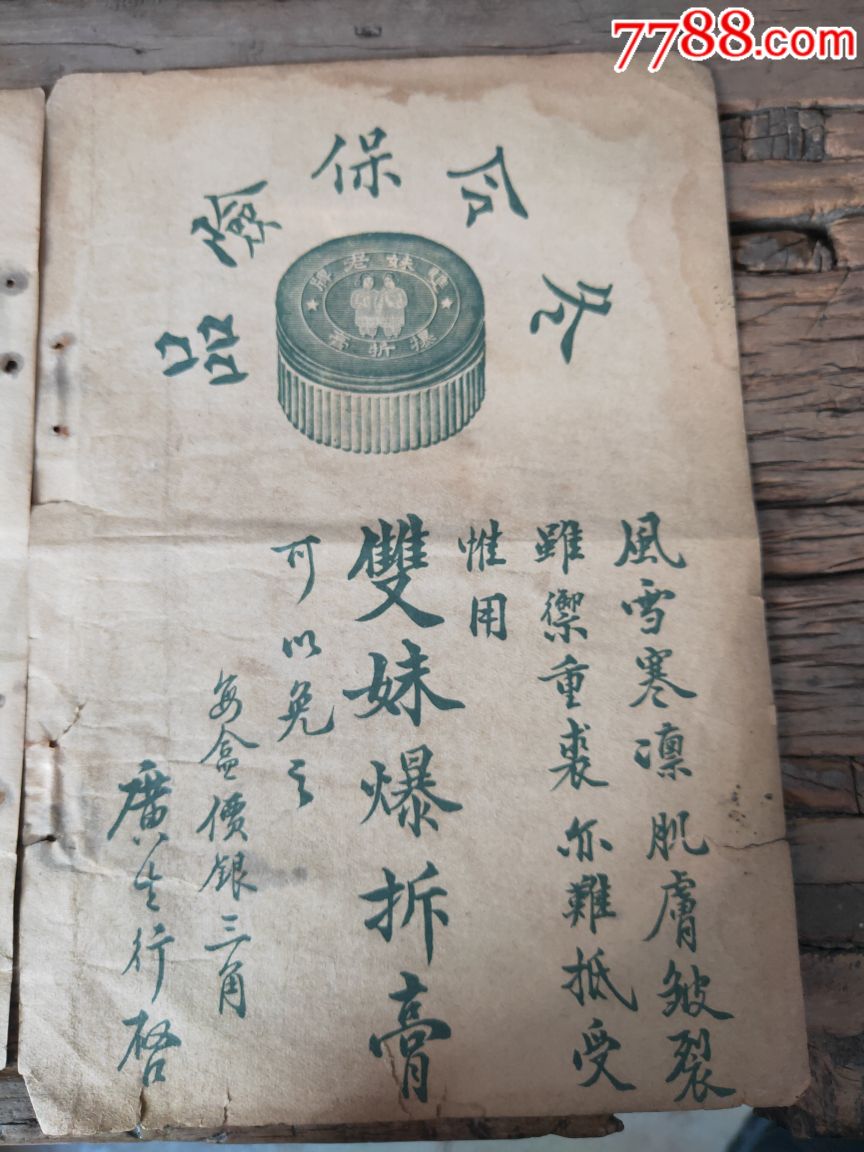 7788.com
冬令保險品
雙妹老牌
爆拆膏
風雪寒凛肌膚皴裂
雖禦重裘亦難抵受
惟用
雙妹爆拆膏
可以免之
每盒價銀三角
廣生行啓